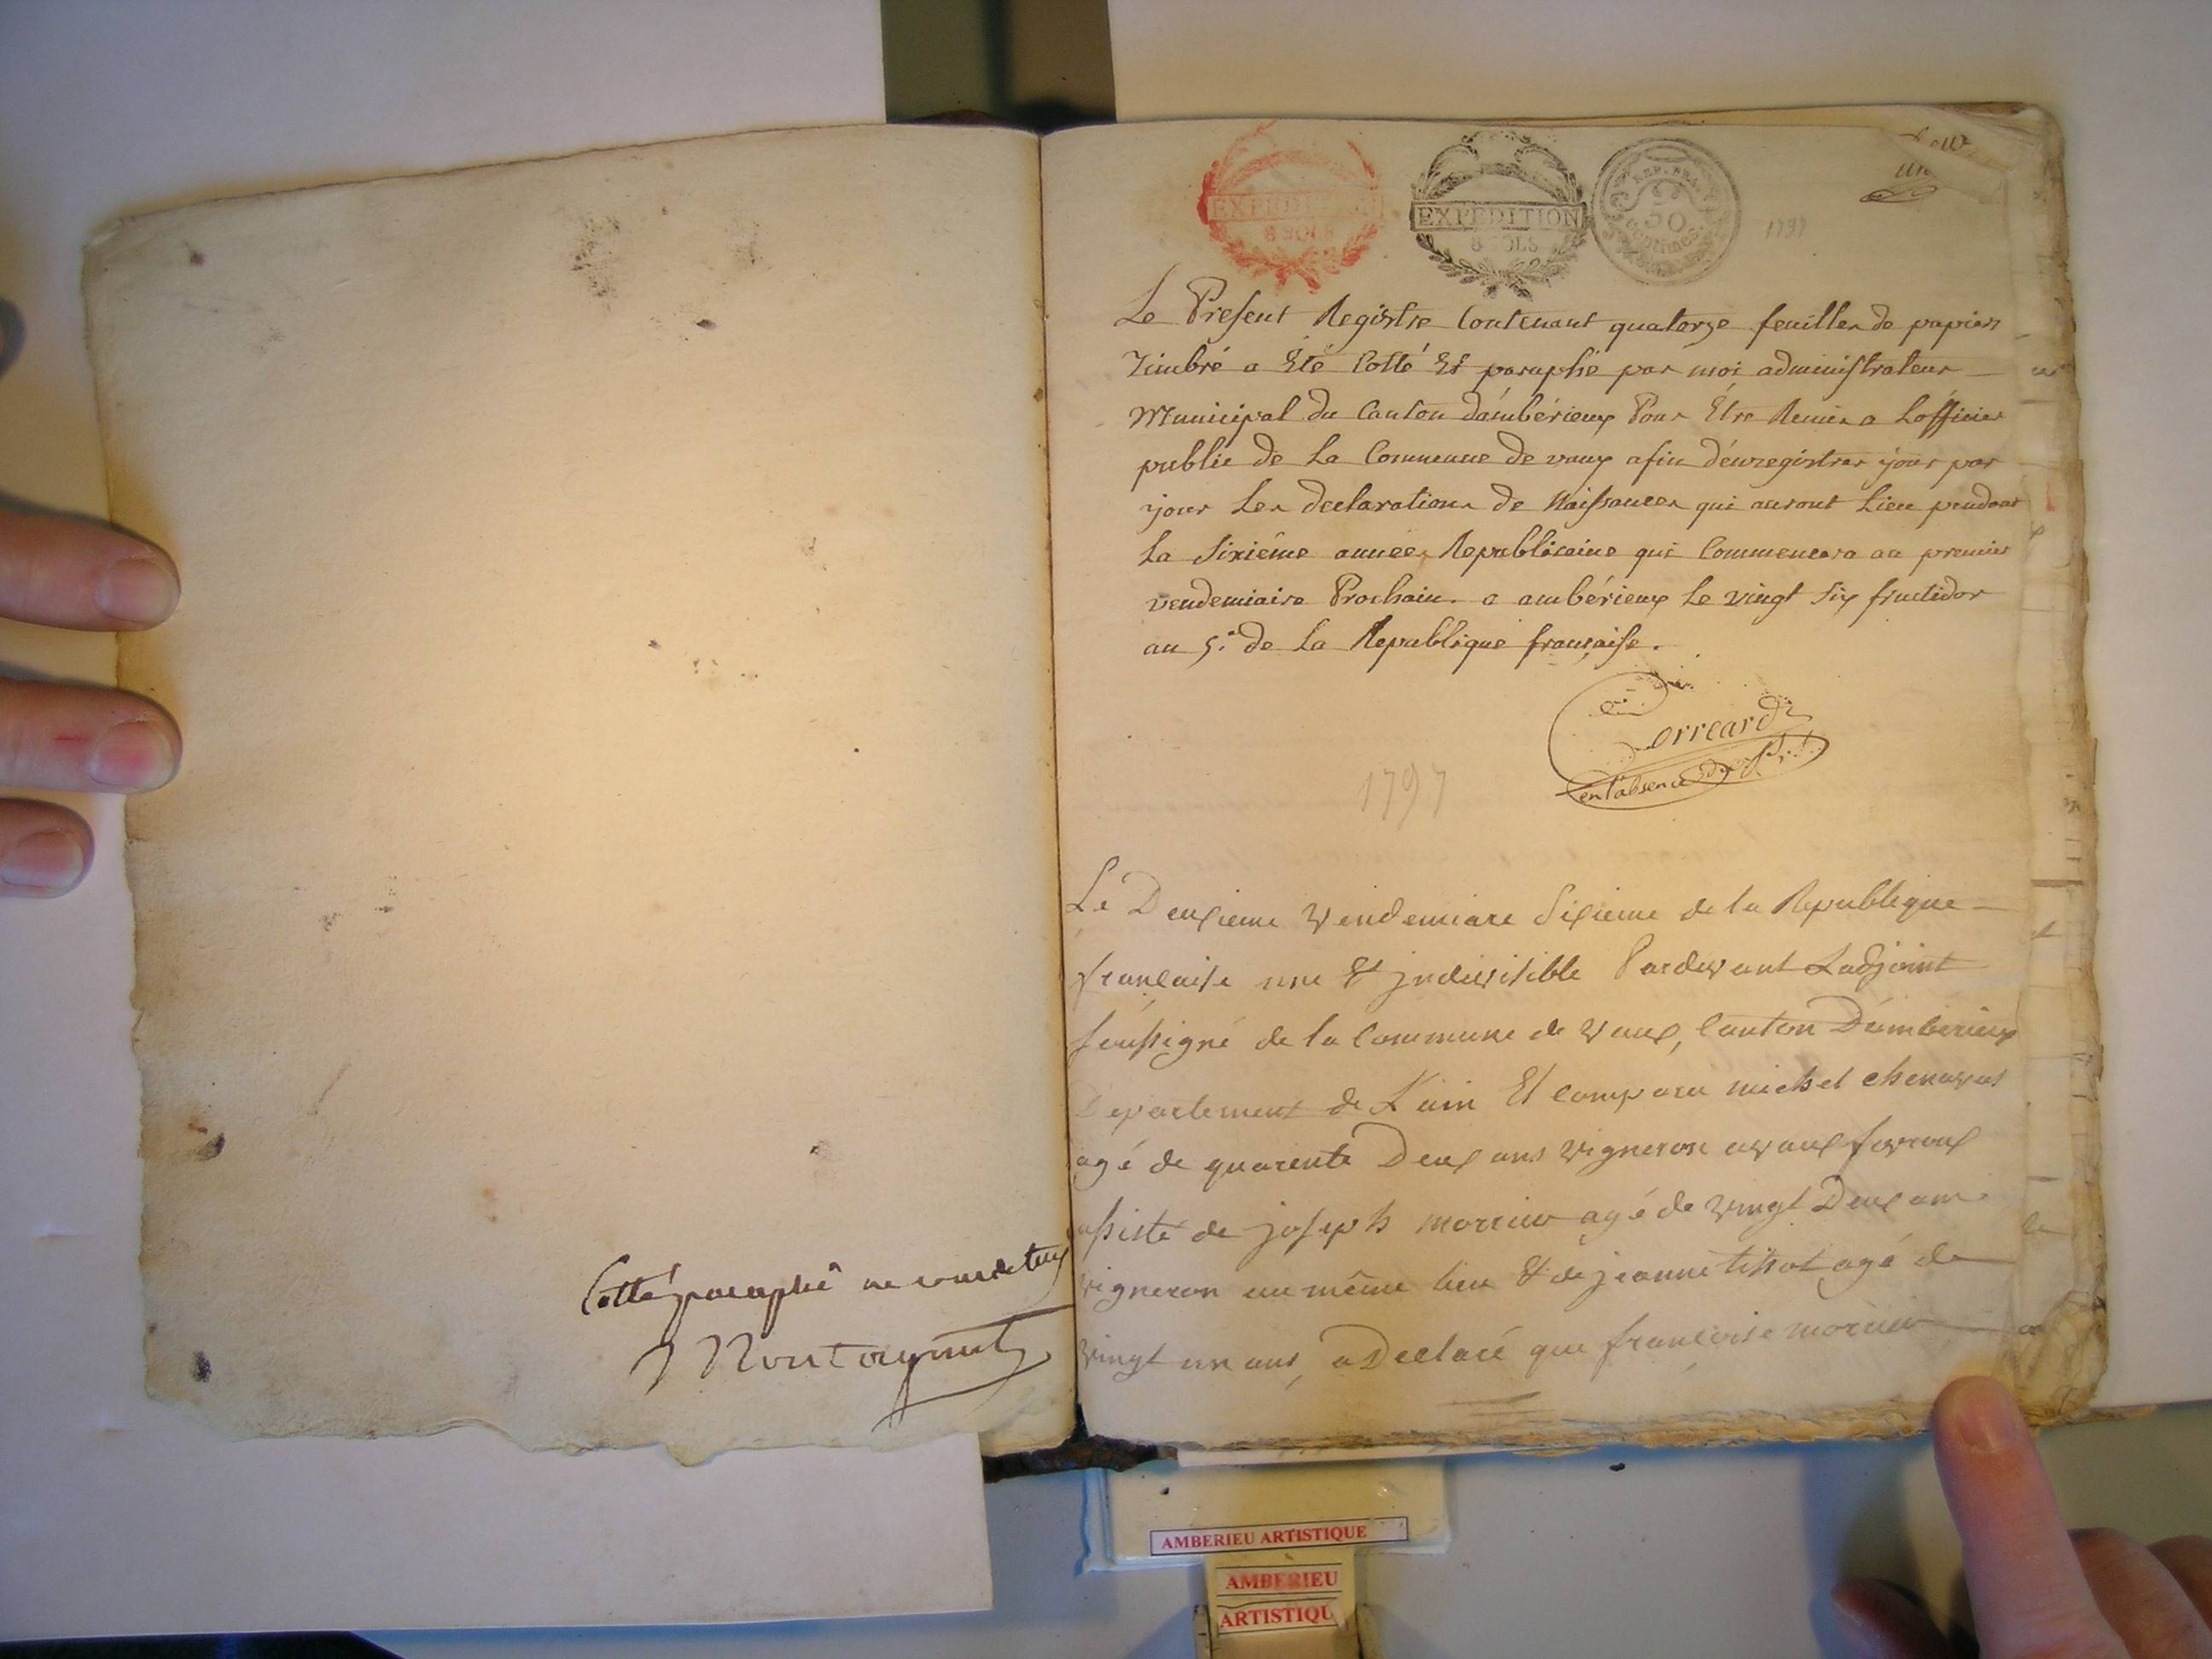 Cotté paraphé
EXPEDITION
8 SOLS
EXPEDITION
8 SOLS
REP. FRA.
50
centimes
1797
un
Le Présent Registre Contenant quatorze feuilles de papier
Timbré a Été Cotté Et paraphé par moi administrateur
Municipal du Canton d'ambérieux Pour Étre Remis a Lofficier
public de La Commune de vaux afin d'énregistrer jour par
jour Les declarations de Naissances qui auront Lieu pendant
La Sixiéme année Republicaine qui Commencera au premier
vendemiaire Prochain. a ambérieux Le vingt Six fructidor
an 5.e de La Republique française.
Correard
en l'absence du Pr.t
1797
Le Deuxieme Vendemiare Sixieme de la Republique
française une & jndivisible Pardevant Ladjoint
soussigné de la Commune de Vaux, Canton D'amberieux
Departement de L'ain Et Comparu michel chenavas
agé de quarente Deux ans vigneron a vaux fevroux
assisté de joseph morrier agé de vingt Deux ans
vigneron au même lieu & de jeanne tissot agé de
vingt un ans, a Declaré que françoise morrier
AMBERIEU ARTISTIQUE
AMBERIEU
ARTISTIQU